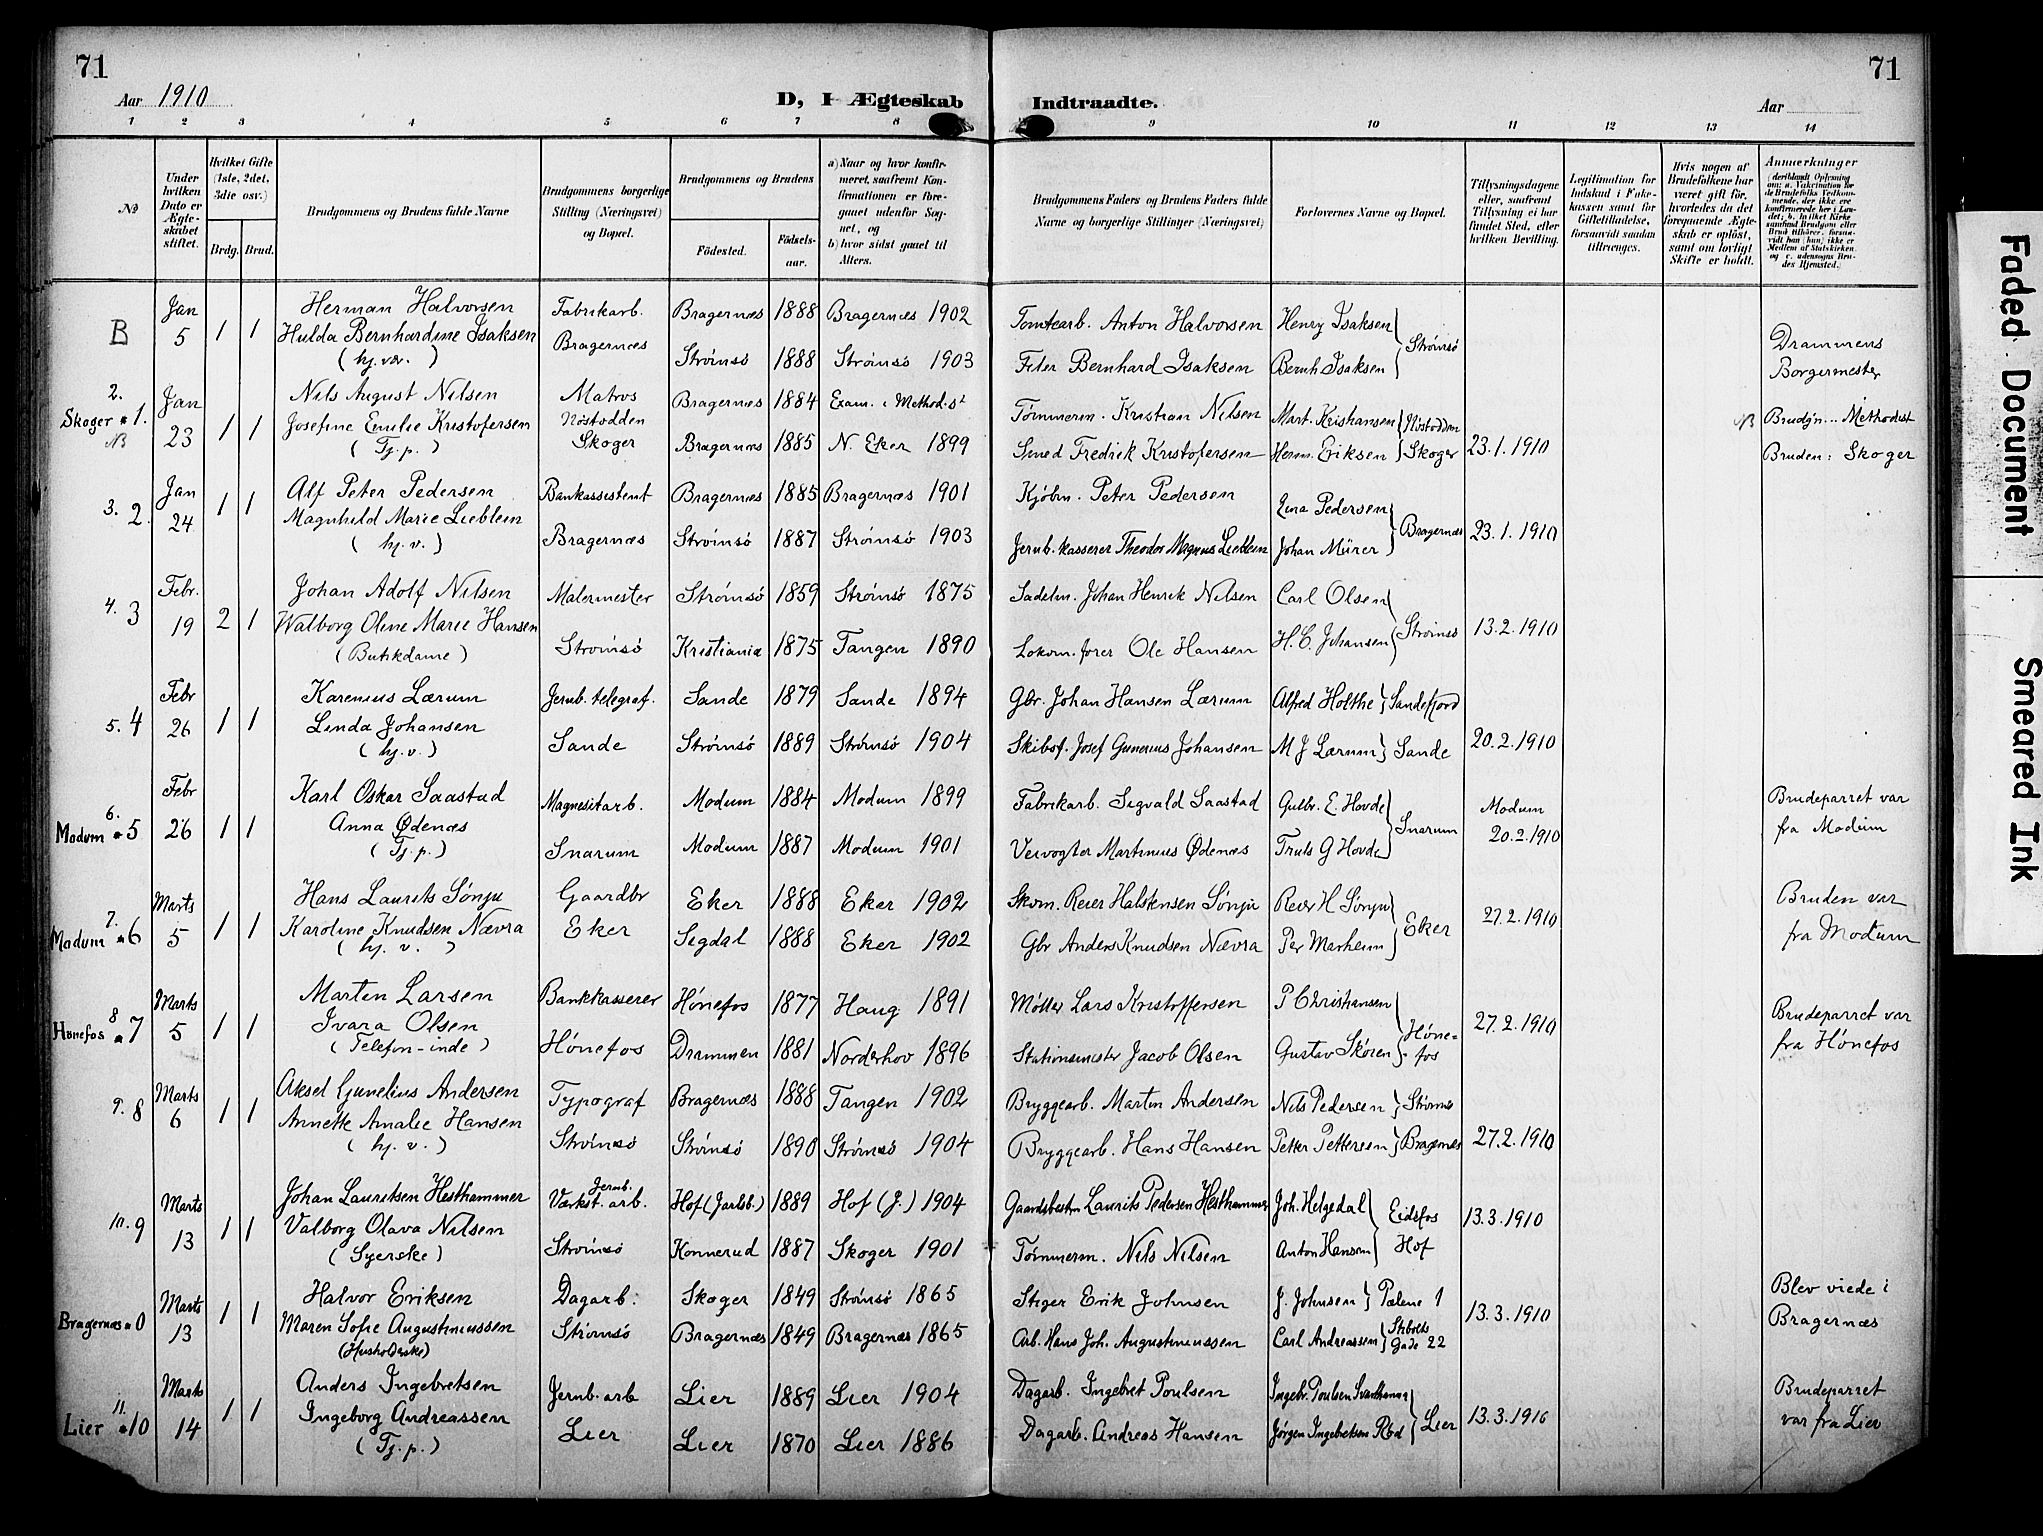 71
71
Aar 1910
D, I Ægteskab Indtraadte.
Aar
1 2 3 4 5 6 7 8 9 10 11 12 13 14
№
Under hvilken Dato er Ægteskabet stiftet.
Hvilket Gifte (1ste, 2det, 3die osv.)
Brdg. Brud.
Brudgommens og Brudens fulde Navne
Brudgommens borgerlige Stilling (Næringsvei) og Bopæl.
Brudgommens og Brudens
Fødested.
Fødsels-aar.
a) Naar og hvor konfirmeret, saafremt Konfirmationen er foregaaet udenfor Sognet, og
b) hvor sidst gaaet til Alters.
Brudgommens Faders og Brudens Faders fulde Navne og borgerlige Stillinger (Næringsvei)
Forlovernes Navne og Bopæl.
Tillysningsdagene eller, saafremt Tillysning ei har fundet Sted, efter hvilken Bevilling.
Legitimation for Indskud i Enkekassen samt for Giftetilladelse, forsaavidt saadan tiltrænges.
Hvis nogen af Brudefolkene har været gift før, hvorledes da det foregaaende Ægteskab er opløst, samt om lovligt Skifte er holdt.
Anmerkninger (deriblandt Oplysning om: a. Vakcination for de Brudefolks Vedkommende, der ikke ere konfirmerede her i Landet; b. hvilket Kirkesamfund Brudgom eller Brud tilhører, forsaavidt han (hun) ikke er Medlem af Statskirken, og c. udensogns Brudes Hjemsted.)
B Jan 5 1 1 Herman Halvorsen Fabrikarb. Bragernæs 1888 Bragernæs 1902 Tomtearb. Anton Halvorsen Henry Isaksen Strømsø Drammens
Hulda Bernhardine Isaksen Bragernæs Strømsø 1888 Strømsø 1903 Filer Bernhard Isaksen Bernh Isaksen Borgermester
(hj. vær.)
2. Skoger 1. NB Jan 23 1 1 Nils August Nilsen Matros Bragernæs 1884 Exam. i Method. Tømmerm. Kristian Nilsen Mart. Kristiansen Nøstodden NB Brudg. Methodist
Josefine Emilie Kristofersen Nøstodden Skoger Bragernæs 1885 N. Eker 1899 Smed Fredrik Kristofersen Herm. Eriksen Skoger 23.1.1910 Bruden: Skoger
(Tj.p.)
3. 2. Jan 24 1 1 Alf Peter Pedersen Bankassistent Bragernæs 1885 Bragernæs 1901 Kjøbm. Peter Pedersen Lina Pedersen Bragernæs 23.1.1910
Magnhild Marie Lieblein Bragernæs Strømsø 1887 Strømsø 1903 Jernb. kasserer Theodor Magnus Lieblein Johan Mürer
(hj. v.)
4. 3 Febr. 19 2 1 Johan Adolf Nilsen Malermester Strømsø 1859 Strømsø 1875 Sadelm. Johan Henrik Nilsen Carl Olsen Strømsø 13.2.1910
Walborg Oline Marie Hansen Strømsø Kristiania 1875 Tangen 1890 Lokom. fører Ole Hansen H. C. Johansen
(Butikdame)
5. 4 Febr 26 1 1 Karenius Lærum Jernb. telegraf. Sande 1879 Sande 1894 Gbr. Johan Hansen Lærum Alfred Holthe Sandefjord
Linda Johansen Sande Strømsø 1889 Strømsø 1904 Skibsf. Josef Gunerius Johansen M J Lærum Sande 20.2.1910
(hj. v.)
6. Modum 5 Febr 26 1 1 Karl Oskar Saastad Magnesitarb. Modum 1884 Modum 1899 Fabrikarb. Sigvald Saastad Gulbr. E. Hovde Snarum Modum 20.2.1910 Brudeparret var
Anna Ødenæs Snarum Modum 1887 Modum 1901 Veivogter Martinius Ødenæs Truls G Hovde fra Modum
(Tj.p.)
7. Modum 6 Marts 5 1 1 Hans Laurits Sønju Gaardbr Eker 1888 Eker 1902 Skom. Reier Halstensen Sønju Reier H Sønju Eker 27.2.1910 Bruden var
Karoline Knudsen Nævra Eker Sigdal 1888 Eker 1902 Gbr Anders Knudsen Nævra Per Marheim fra Modum
(hj. v.)
8 Hønefos 7 Marts 5 1 1 Martin Larsen Bankkasserer Hønefos 1877 Haug 1891 Møller Lars Kristoffersen P Christiansen Hønefos 27.2.1910 Brudeparret var
Ivara Olsen Hønefos Drammen 1881 Norderhov 1896 Stationsmester Jacob Olsen Gustav Skøren fra Hønefos
(Telefon-inde)
9. 8 Marts 6 1 1 Aksel Gunelius Andersen Typograf Bragernæs 1888 Tangen 1902 Bryggearb. Martin Andersen Nils Pedersen Strømsø
Annette Amalie Hansen Strømsø Strømsø 1890 Strømsø 1904 Bryggearb. Hans Hansen Petter Pettersen Bragernæs 27.2.1910
(hj. v.)
10. 9 Marts 13 1 1 Johan Lauritsen Hesthammer Jernb. Værkst. arb. Hof (Jarlsb.) 1889 Hof (J.) 1904 Gaardsbestm Laurits Pedersen Hesthammer Joh. Helgedal Eidsfos 13.3.1910
Valborg Olava Nilsen Strømsø Konnerud 1887 Skoger 1901 Tømmerm. Nils Nilsen Anton Hansen Hof
(Syerske)
Bragernæs 0 Marts 13 1 1 Halvor Eriksen Dagarb. Skoger 1849 Strømsø 1865 Stiger Erik Johnsen J. Johnsen Pælene 1 13.3.1910 Blev viede i
Maren Sofie Augustinussen Strømsø Bragernæs 1849 Bragernæs 1865 Arb. Hans Joh. Augustinussen Carl Andreassen Skibolts Gade 22 Bragernæs
(Husholderske)
11. Lier 10 Marts 14 1 1 Anders Ingebretsen Jernb. arb Lier 1889 Lier 1904 Dagarb. Ingebret Poulsen Ingebr. Poulsen Lier 13.3.1910 Brudeparret
Ingeborg Andreassen Lier Lier 1870 Lier 1886 Dagarb. Andreas Hansen Jørgen Ingebretsen var fra Lier
(Tj.p.)
Faded Document
Smeared Ink